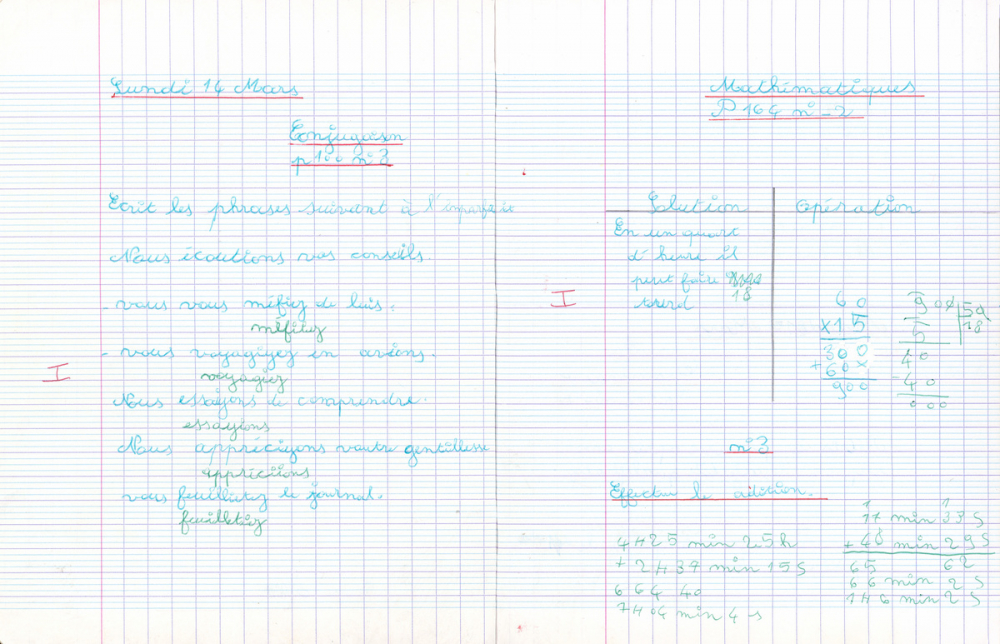 Lundi 14 Mars
Conjugaison
p 100 n°3
Ecrit les phrases suivant à l'imparfait
Nous écoutions vos conseils.
- vous vous méfiez de luis.
méfiiez
- vous voyagiyez en avions.
voyagiez
I
Nous essayons de comprendre.
essayions
Nous appréciyons vautre gentillesse
appréciions
vous feuilletez le journal.
feuilletiez
Mathématiques
P 164 n°-2
Solution
Opération
En un quart
d'heure il
peut faire
18
I
60
x15
300
+60x
900
900
50
5
18
40
-40
000
n°3
Effectue le adition.
4H25 min 25
+ 2H37 min 15s
664 40
7H04 min 4
1 1
17 min 33s
+ 48 min 29s
65 62
66 min 2s
1H6 min 2s